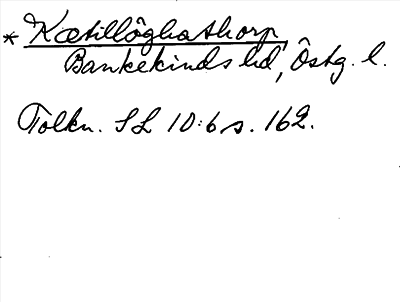 * Kætilløghathorp,
Bankekinds hd, Östg. l.
Tolkn. SL 10:6 s. 162.